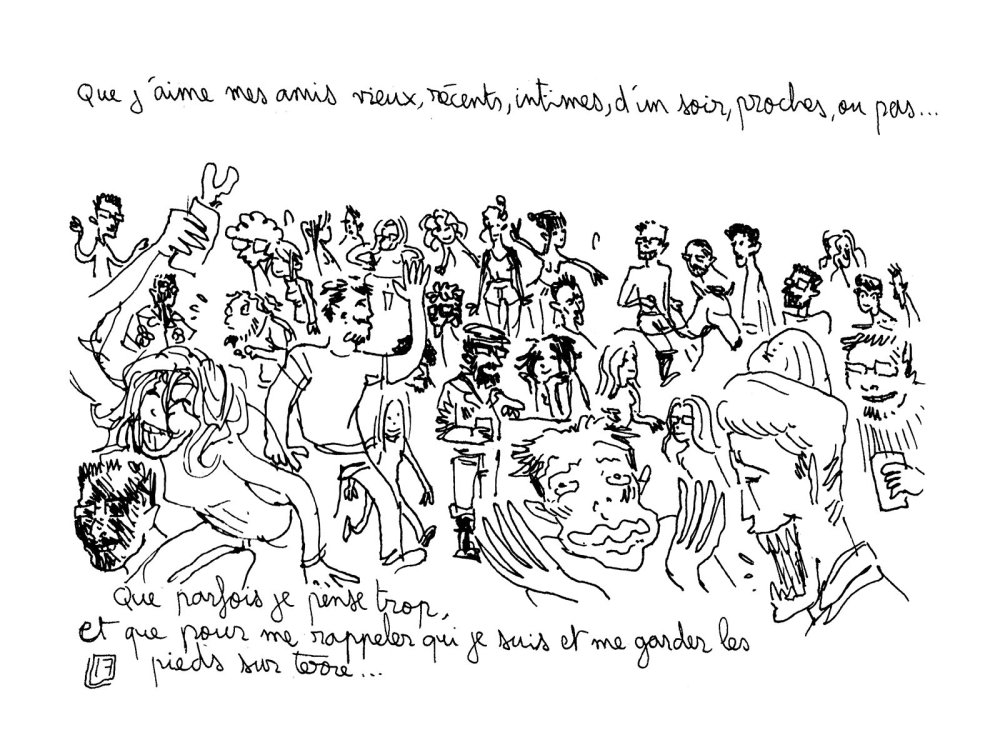 Que j'aime mes amis vieux, récents, intimes, d'un soir, proches, ou pas...
Que parfois je pense trop,
et que pour me rappeler qui je suis et me garder les
17
pieds sur terre...